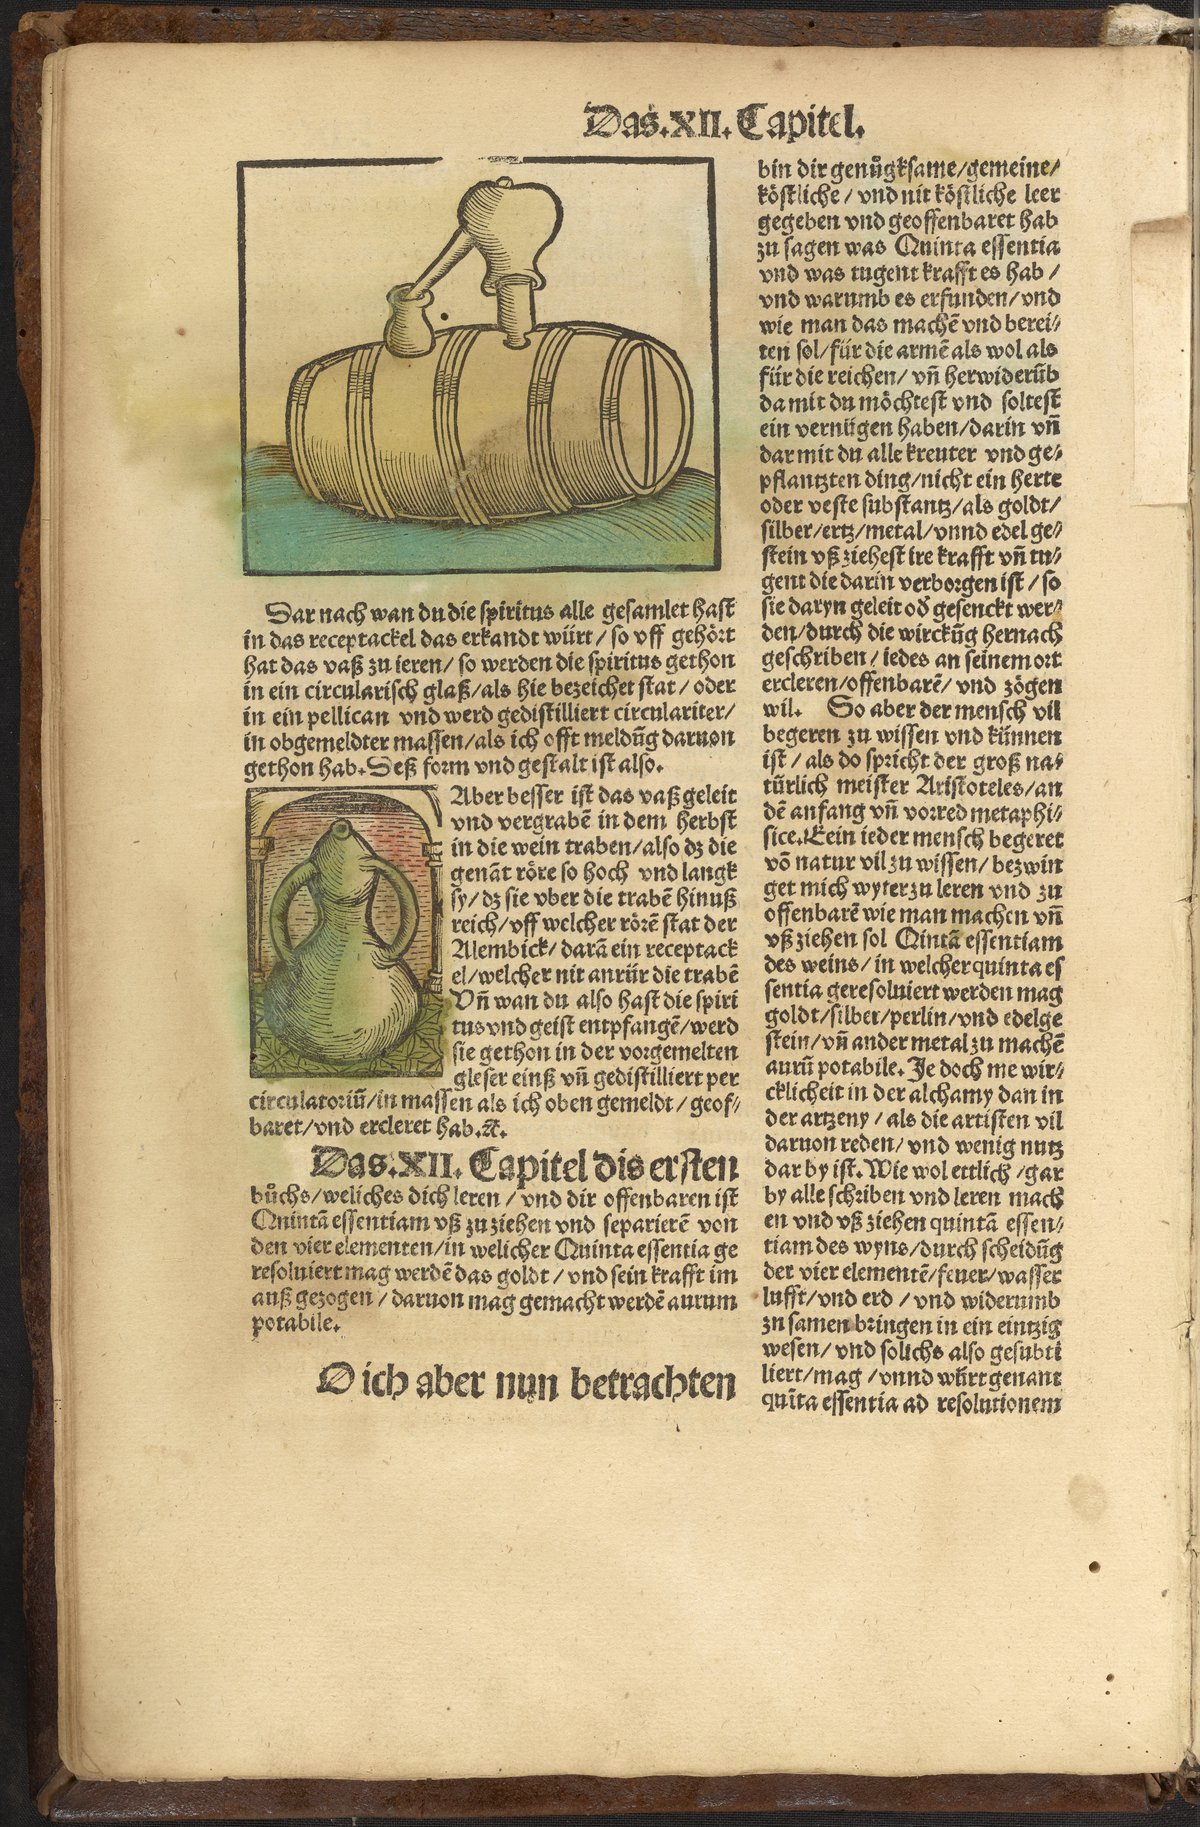 Das.XII.Capitel.
Dar nach wan du die spiritus alle gesamlet hast
in das receptackel das erkandt würt / so vff gehört
hat das vaß zu ieren / so werden die spiritus gethon
in ein circularisch glaß / als hie bezeichet stat / oder
in ein pellican vnd werd gedistilliert circulariter /
in obgemeldter massen / als ich offt meldūg daruon
gethon hab. Deß form vnd gestalt ist also.
Aber besser ist das vaß geleit
vnd vergrabē in dem herbst
in die wein traben / also dz die
genāt röre so hoch vnd langk
sy / dz sie vber die trabē hinuß
reich / vff welcher rörē stat der
Alembick / darā ein receptack
el / welcher nit anrür die trabē
Vn̄ wan du also hast die spiri
tus vnd geist entpfangē / werd
sie gethon in der vorgemelten
gleser einß vn̄ gedistilliert per
circulatoriū / in massen als ich oben gemeldt / geof⸗
baret / vnd ercleret hab.
Das.XII. Capitel dis ersten
bůchs / weliches dich leren / vnd dir offenbaren ist
Quintā essentiam vß zu ziehen vnd separierē von
den vier elementen / in welicher Quinta essentia ge
resoluiert mag werdē das goldt / vnd sein krafft im
auß gezogen / daruon mag gemacht werdē aurum
potabile.
O ich aber nun betrachten
bin dir genůgksame / gemeine /
köstliche / vnd nit köstliche leer
gegeben vnd geoffenbaret hab
zu sagen was Quinta essentia
vnd was tugent krafft es hab /
vnd warumb es erfunden / vnd
wie man das machē vnd berei⸗
ten sol / für die armē als wol als
für die reichen / vn̄ herwiderūb
da mit du möchtest vnd soltest
ein vernügen haben / darin vn̄
dar mit du alle kreuter vnd ge⸗
pflantzten ding / nicht ein herte
oder veste substantz / als goldt /
silber / ertz / metal / vnnd edel ge⸗
stein vß ziehest ire krafft vn̄ tu⸗
gent die darin verborgen ist / so
sie daryn geleit od̕ gesenckt wer⸗
den / durch die wirckūg hernach
geschriben / iedes an seinem ort
ercleren / offenbarē / vnd zögen
wil. So aber der mensch vil
begeren zu wissen vnd künnen
ist / als do spricht der groß na⸗
türlich meister Aristoteles / an
dē anfang vn̄ vorred metaphi⸗
sice. Eein ieder mensch begeret
vō natur vil zu wissen / bezwin
get mich wyter zu leren vnd zu
offenbarē wie man machen vn̄
vß ziehen sol Qintā essentiam
des weins / in welcher quinta es
sentia geresoluiert werden mag
goldt / silber / perlin / vnd edelge
stein / vn̄ ander metal zu machē
aurū potabile. Je doch me wir⸗
cklicheit in der alchamy dan in
der artzeny / als die artisten vil
daruon reden / vnd wenig nutz
dar by ist. Wie wol ettlich / gar
by alle schriben vnd leren mach
en vnd vß ziehen quintā essen⸗
tiam des wyns / durch scheidūg
der vier elementē / feuer / wasser
lufft / vnd erd / vnd widerumb
zu samen bringen in ein eintzig
wesen / vnd solichs also gesubti
liert / mag / vnnd würt genant
quīta essentia ad resolutionem